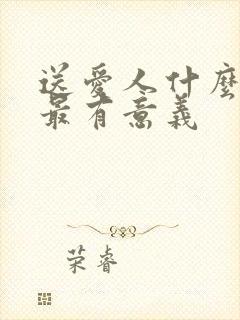 送愛人什麼
最有意義
荣睿